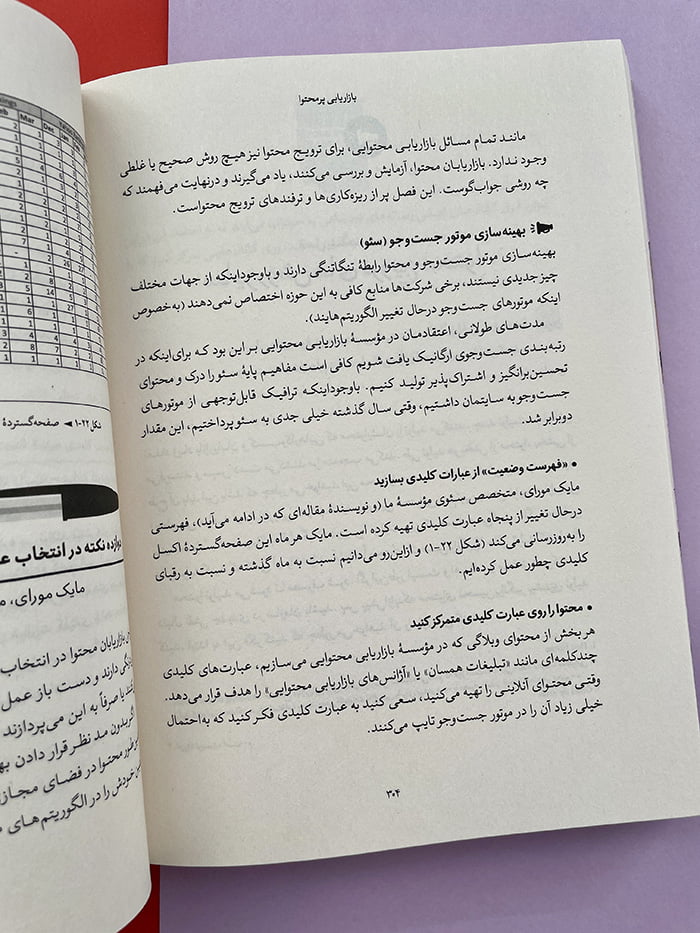 بازاریابی پرمحتوا
مانند تمام مسائل بازاریابی محتوایی، برای ترویج محتوا نیز هیچ روش صحیح یا غلطی
وجود ندارد. بازاریابان محتوا، آزمایش و بررسی می‌کنند، یاد می‌گیرند و درنهایت می‌فهمند که
چه روشی جواب‌گوست. این فصل پر از ریزه‌کاری‌ها و ترفندهای ترویج محتواست.
بهینه‌سازی موتور جست‌وجو (سئو)
بهینه‌سازی موتور جست‌وجو و محتوا رابطهٔ تنگاتنگی دارند و باوجوداینکه از جهات مختلف
چیز جدیدی نیستند، برخی شرکت‌ها منابع کافی به این حوزه اختصاص نمی‌دهند (به‌خصوص
اینکه موتورهای جست‌وجو درحال تغییر الگوریتم‌هایند).
مدت‌های طولانی، اعتقادمان در مؤسسهٔ بازاریابی محتوایی بر این بود که برای‌اینکه در
رتبه‌بندی جست‌وجوی ارگانیک یافت شویم کافی است مفاهیم پایهٔ سئو را درک و محتوای
تحسین‌برانگیز و اشتراک‌پذیر تولید کنیم. باوجوداینکه ترافیک قابل‌توجهی از موتورهای
جست‌وجو به سایتمان داشتیم، وقتی سال گذشته خیلی جدی به سئو پرداختیم، این مقدار
دوبرابر شد.
• «فهرست وضعیت» از عبارات کلیدی بسازید
مایک مورای، متخصص سئوی مؤسسهٔ ما (و نویسندهٔ مقاله‌ای که در ادامه می‌آید)، فهرستی
درحال تغییر از پنجاه عبارت کلیدی تهیه کرده است. مایک هر ماه این صفحه‌گستردهٔ اکسل
را به‌روزرسانی می‌کند (شکل ۲۲-۱) و ازاین‌رو می‌دانیم نسبت به ماه گذشته و نسبت به رقبای
کلیدی چطور عمل کرده‌ایم.
• محتوا را روی عبارت کلیدی متمرکز کنید
هر بخش از محتوای وبلاگی که در مؤسسهٔ بازاریابی محتوایی می‌سازیم، عبارت‌های کلیدی
چندکلمه‌ای مانند «تبلیغات همسان» یا «آژانس‌های بازاریابی محتوایی» را هدف قرار می‌دهد.
وقتی محتوای آنلاینی را تهیه می‌کنید، سعی کنید به عبارت کلیدی فکر کنید که به‌احتمال
خیلی زیاد آن را در موتور جست‌وجو تایپ می‌کنند.
۳۰۴
Mar Dec
شکل ۲۲-۱ ◄ صفحه‌گستردهٔ
نکته در انتخاب
مایک مورای،
بازاریابان محتوا در انتخاب
دارند و دست باز عمل
یا صرفاً به این می‌پردازند
بدون مد نظر قرار دادن
محتوا در فضای
خودش را در الگوریتم‌های